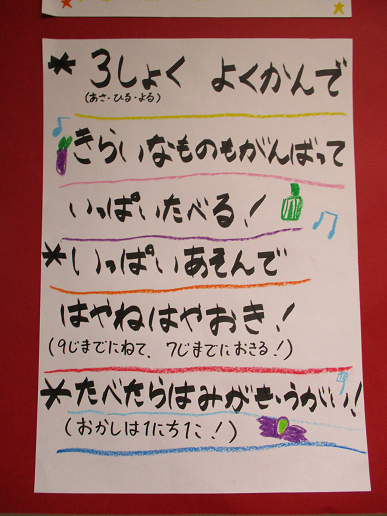 * 3しょく よくかんで
(あさ・ひる・よる)
きらいなものもがんばって
いっぱいたべる!
* いっぱいあそんで
はやねはやおき!
(9じまでにねて、7じまでにおきる!)
* たべたらはみがき・うがい!
(おかしは1にち1こ!)